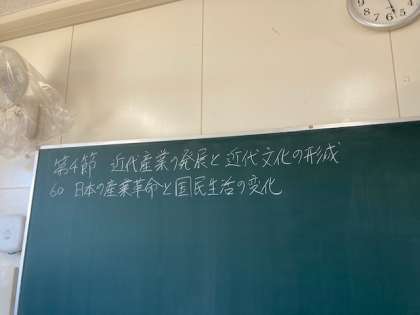 第4節 近代産業の発展と近代文化の形成
60 日本の産業革命と国民生活の変化